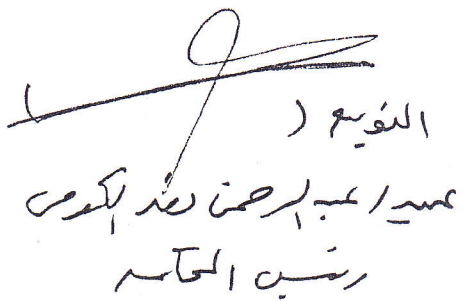 التوقيع (
عميد / عبد الرحمن الكردي
رئيس المحكمة